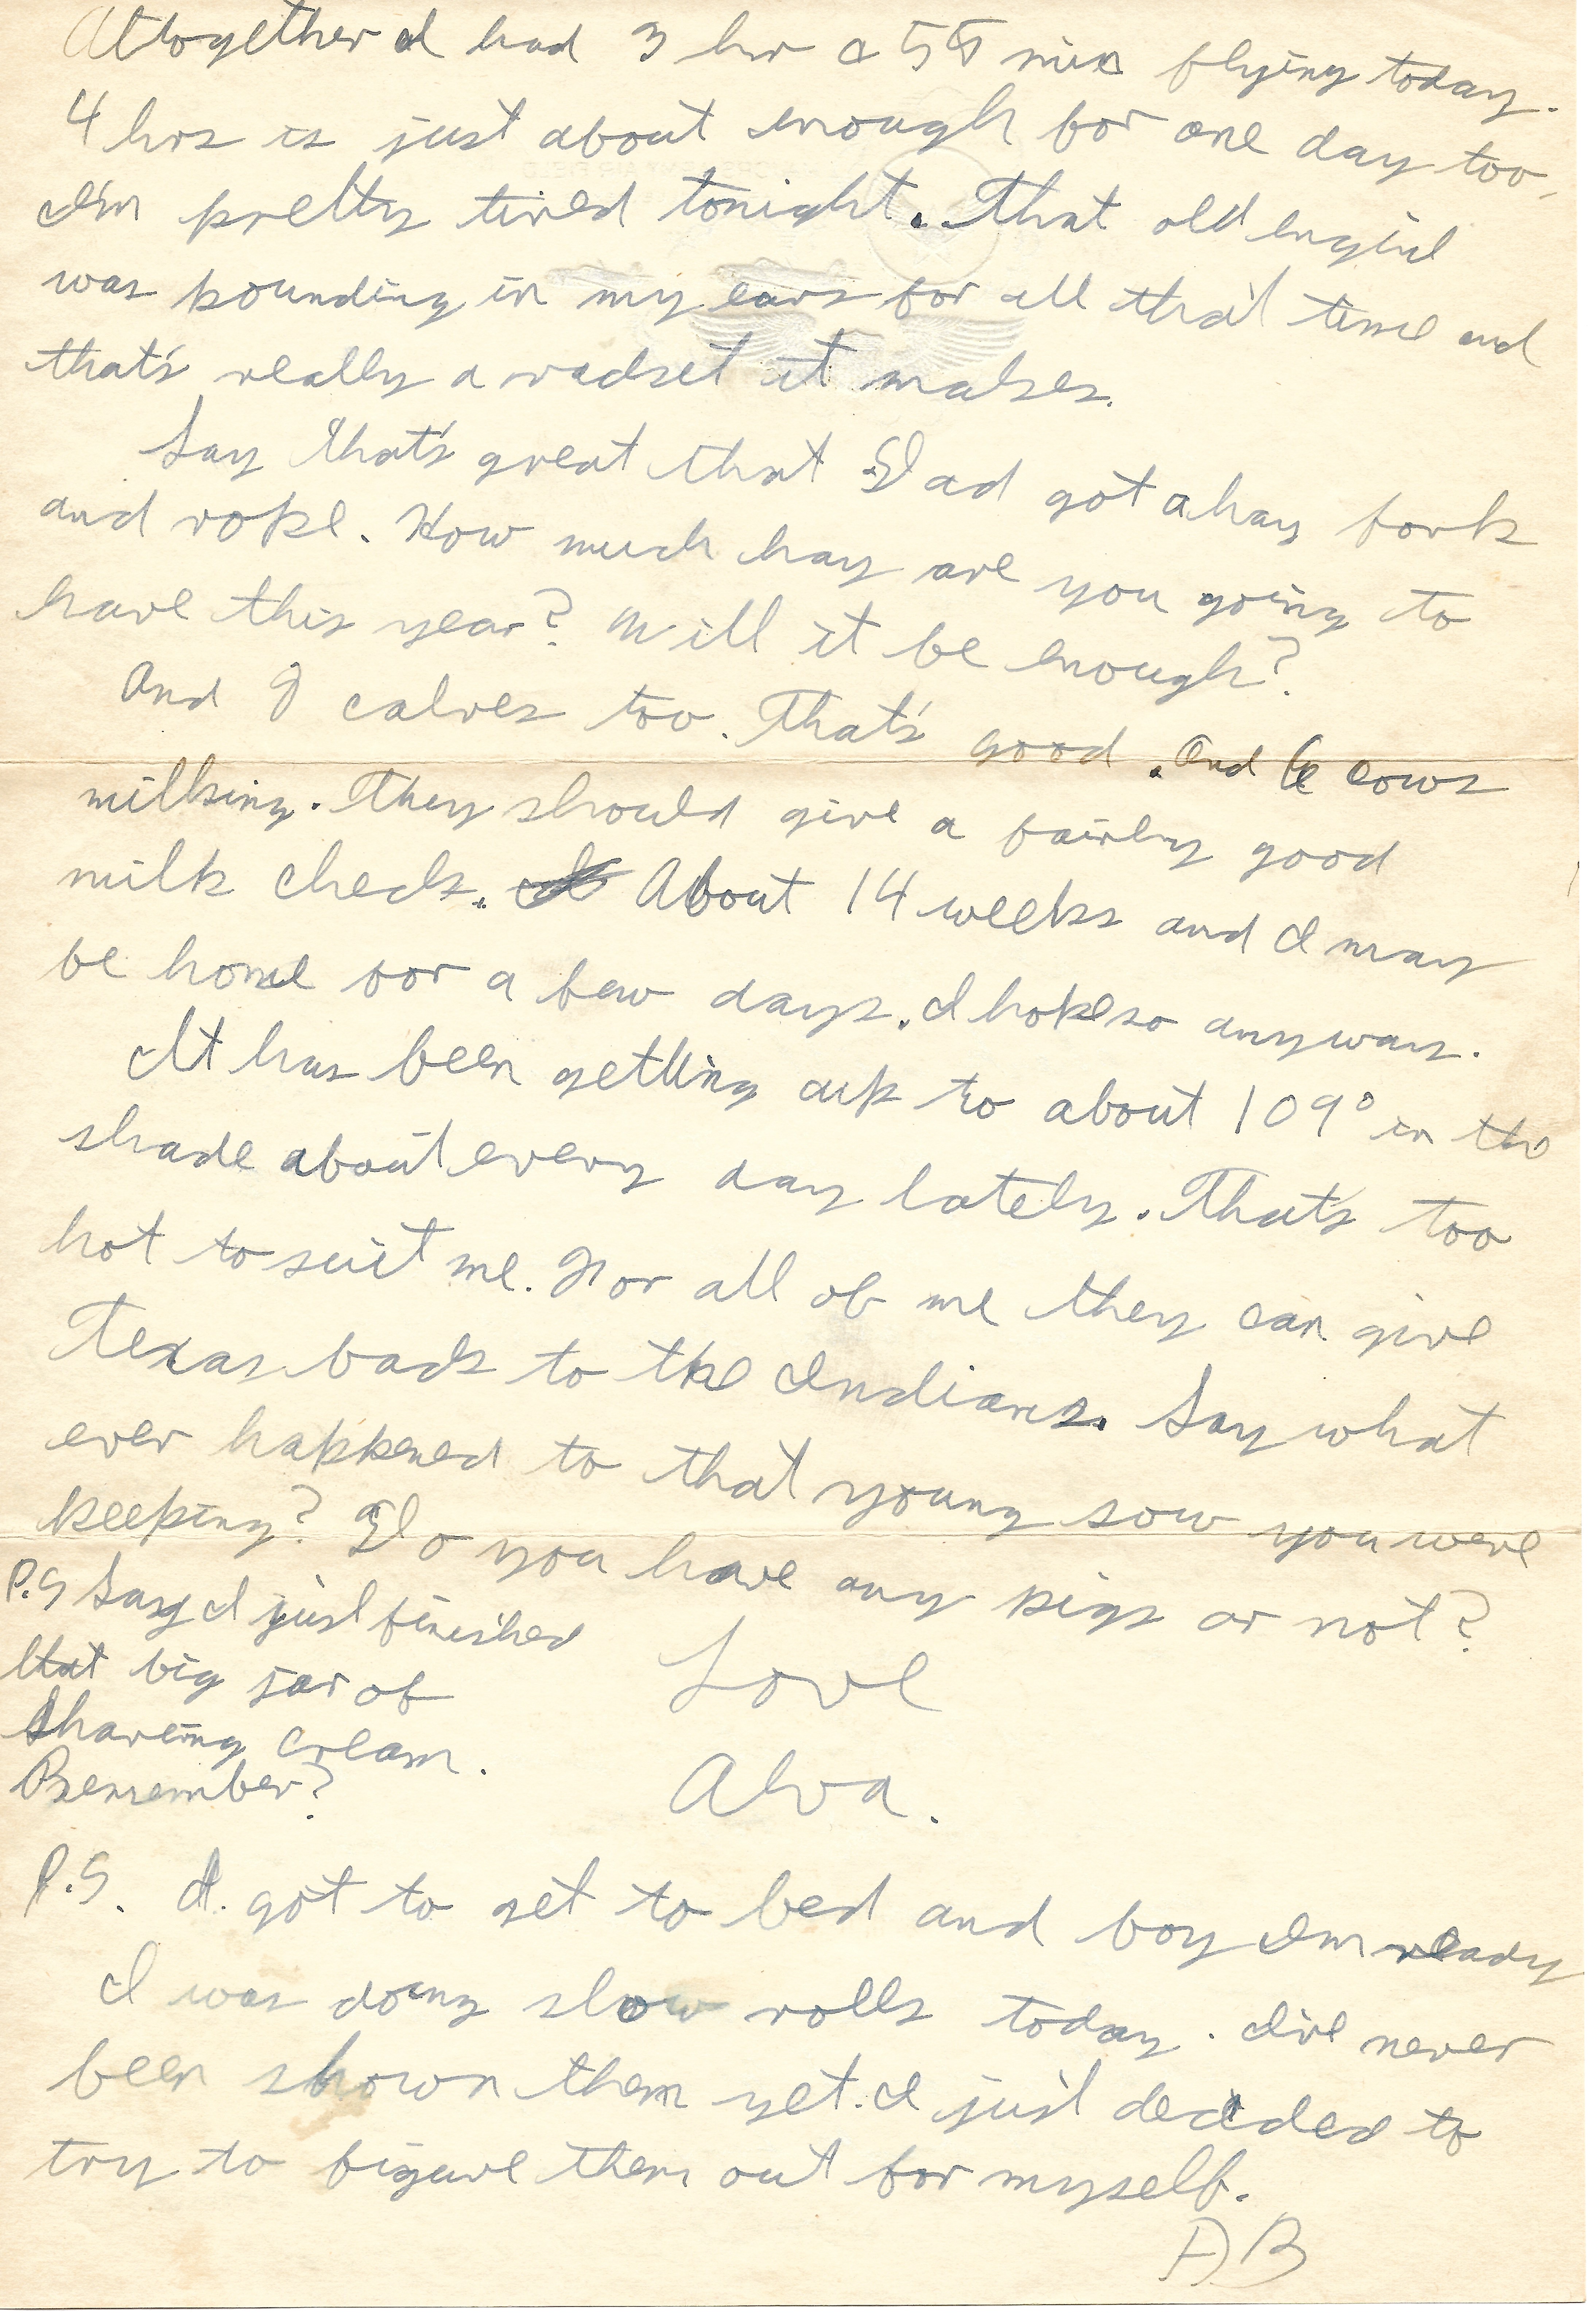 Altogether I had 3 hr & 55 min flying today.
4 hrs is just about enough for one day too,
I'm pretty tired tonight. That old engine
was pounding in my ears for all that time and
that's really a racket it makes.
Say that's great that Dad got a hay fork
and rope. How much hay are you going to
have this year? Will it be enough?
And 9 calves too. That's good. And 6 cows
milking. They should give a fairly good
milk check. About 14 weeks and I may
be home for a few days. I hope so anyway.
It has been getting up to about 109° in the
shade about every day lately. That's too
hot to suit me. For all of me they can give
Texas back to the Indians. Say what
ever happened to that young sow you were
keeping? Do you have any pigs or not?
P.S Say I just finished
that big jar of
shaving cream.
Remember?
Love
Alva.
P.S. I got to get to bed and boy I'm ready
I was doing slow rolls today. I've never
been shown them yet. I just decided to
try to figure them out for myself.
AB